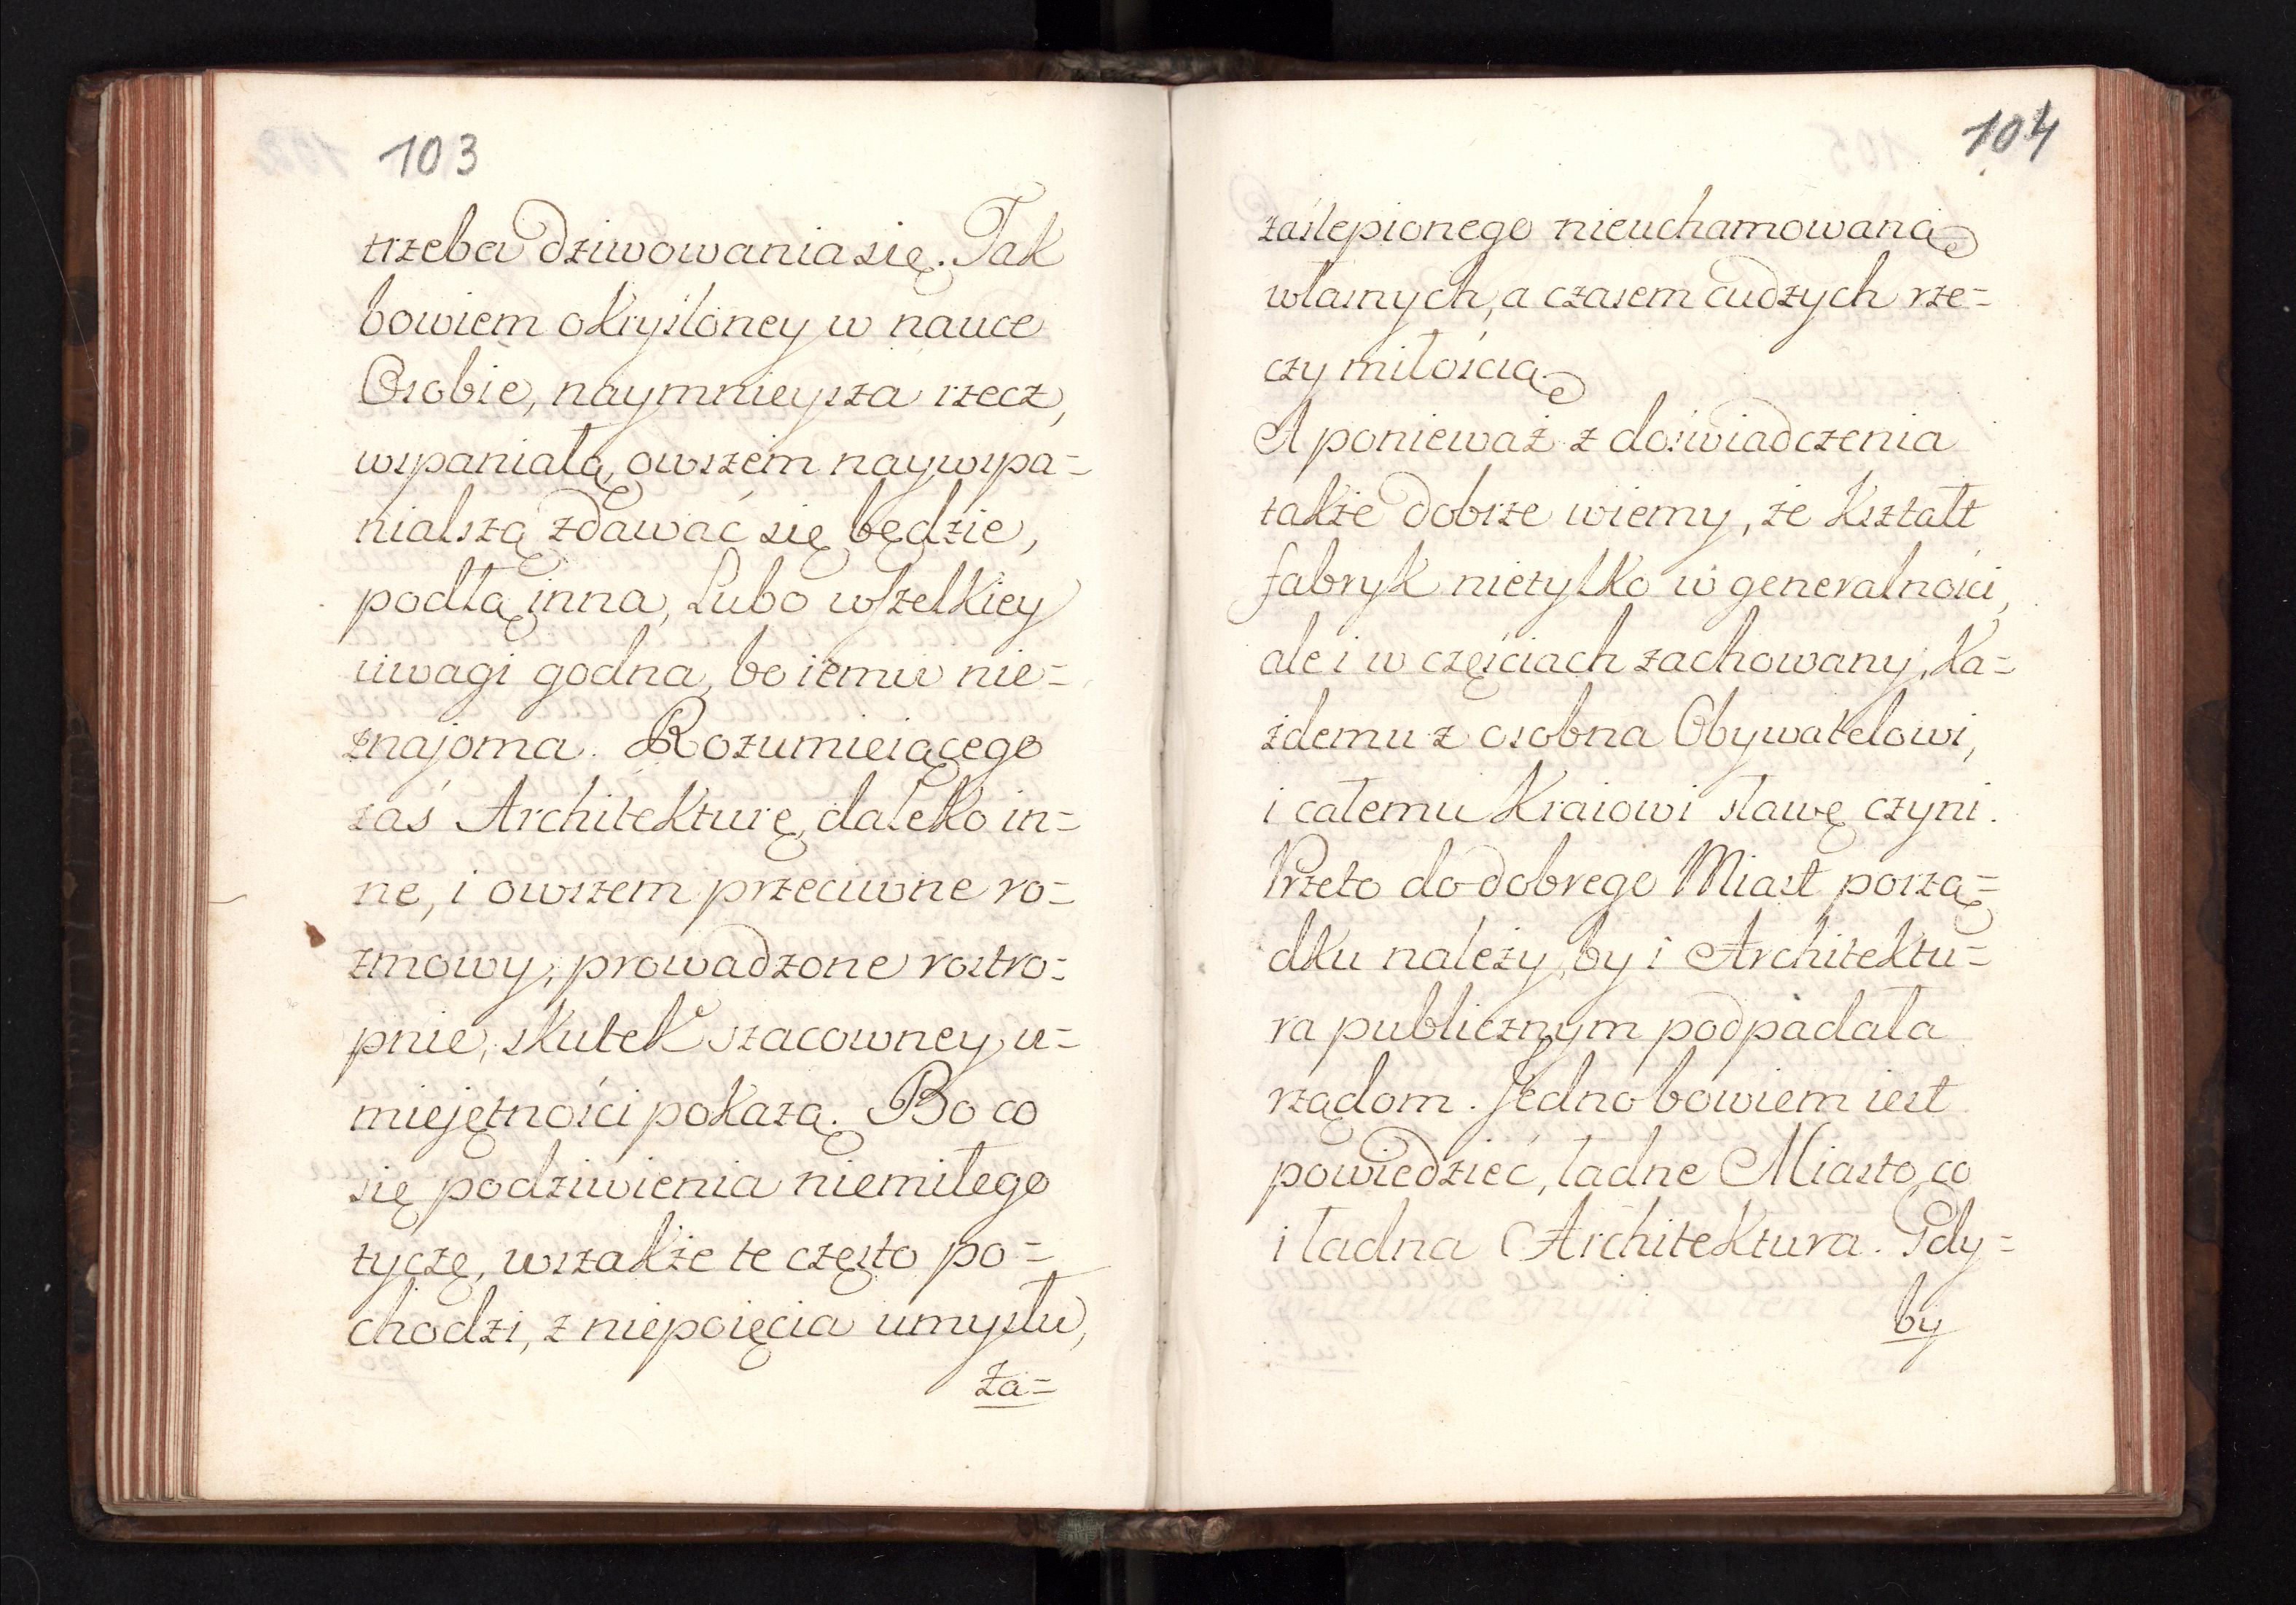 103
trzeba dziwowania się. Tak
bowiem okryśloney w nauce
Osobie, naymnieysza rzecz,
wspaniałą, owszem naywspa=
nialszą zdawać się będzie,
podłą inna, Lubo wszelkiey
uwagi godna, bo iemu nie=
znajoma. Rozumieiącego
zaś Architekturę, daleko in=
ne, i owszem przeciwne ro=
zmowy, prowadzone rostro=
pnie, skutek szacowney u=
miejętności pokażą. Bo co
się podziwienia niemiłego
tyczę, wszakże te często po=
chodzi, z niepoięcia umysłu,
za=
104
zaślepionego nieuchamowaną
własnych, a czasem cudzych rze=
czy miłością.
A ponieważ z doświadczenia
także dobrze wiemy, że kształt
fabryk nietylko w generalności,
ale i w częściach zachowany, ka=
żdemu z osobna Obywatelowi,
i całemu Kraiowi sławę czyni.
Przeto do dobrego Miast porzą=
dku należy, by i Architektu=
ra publicznym podpadała
rządom. Jedno bowiem iest
powiedzieć, ładne Miasto, co
i ładna Architektura. Gdy=
by